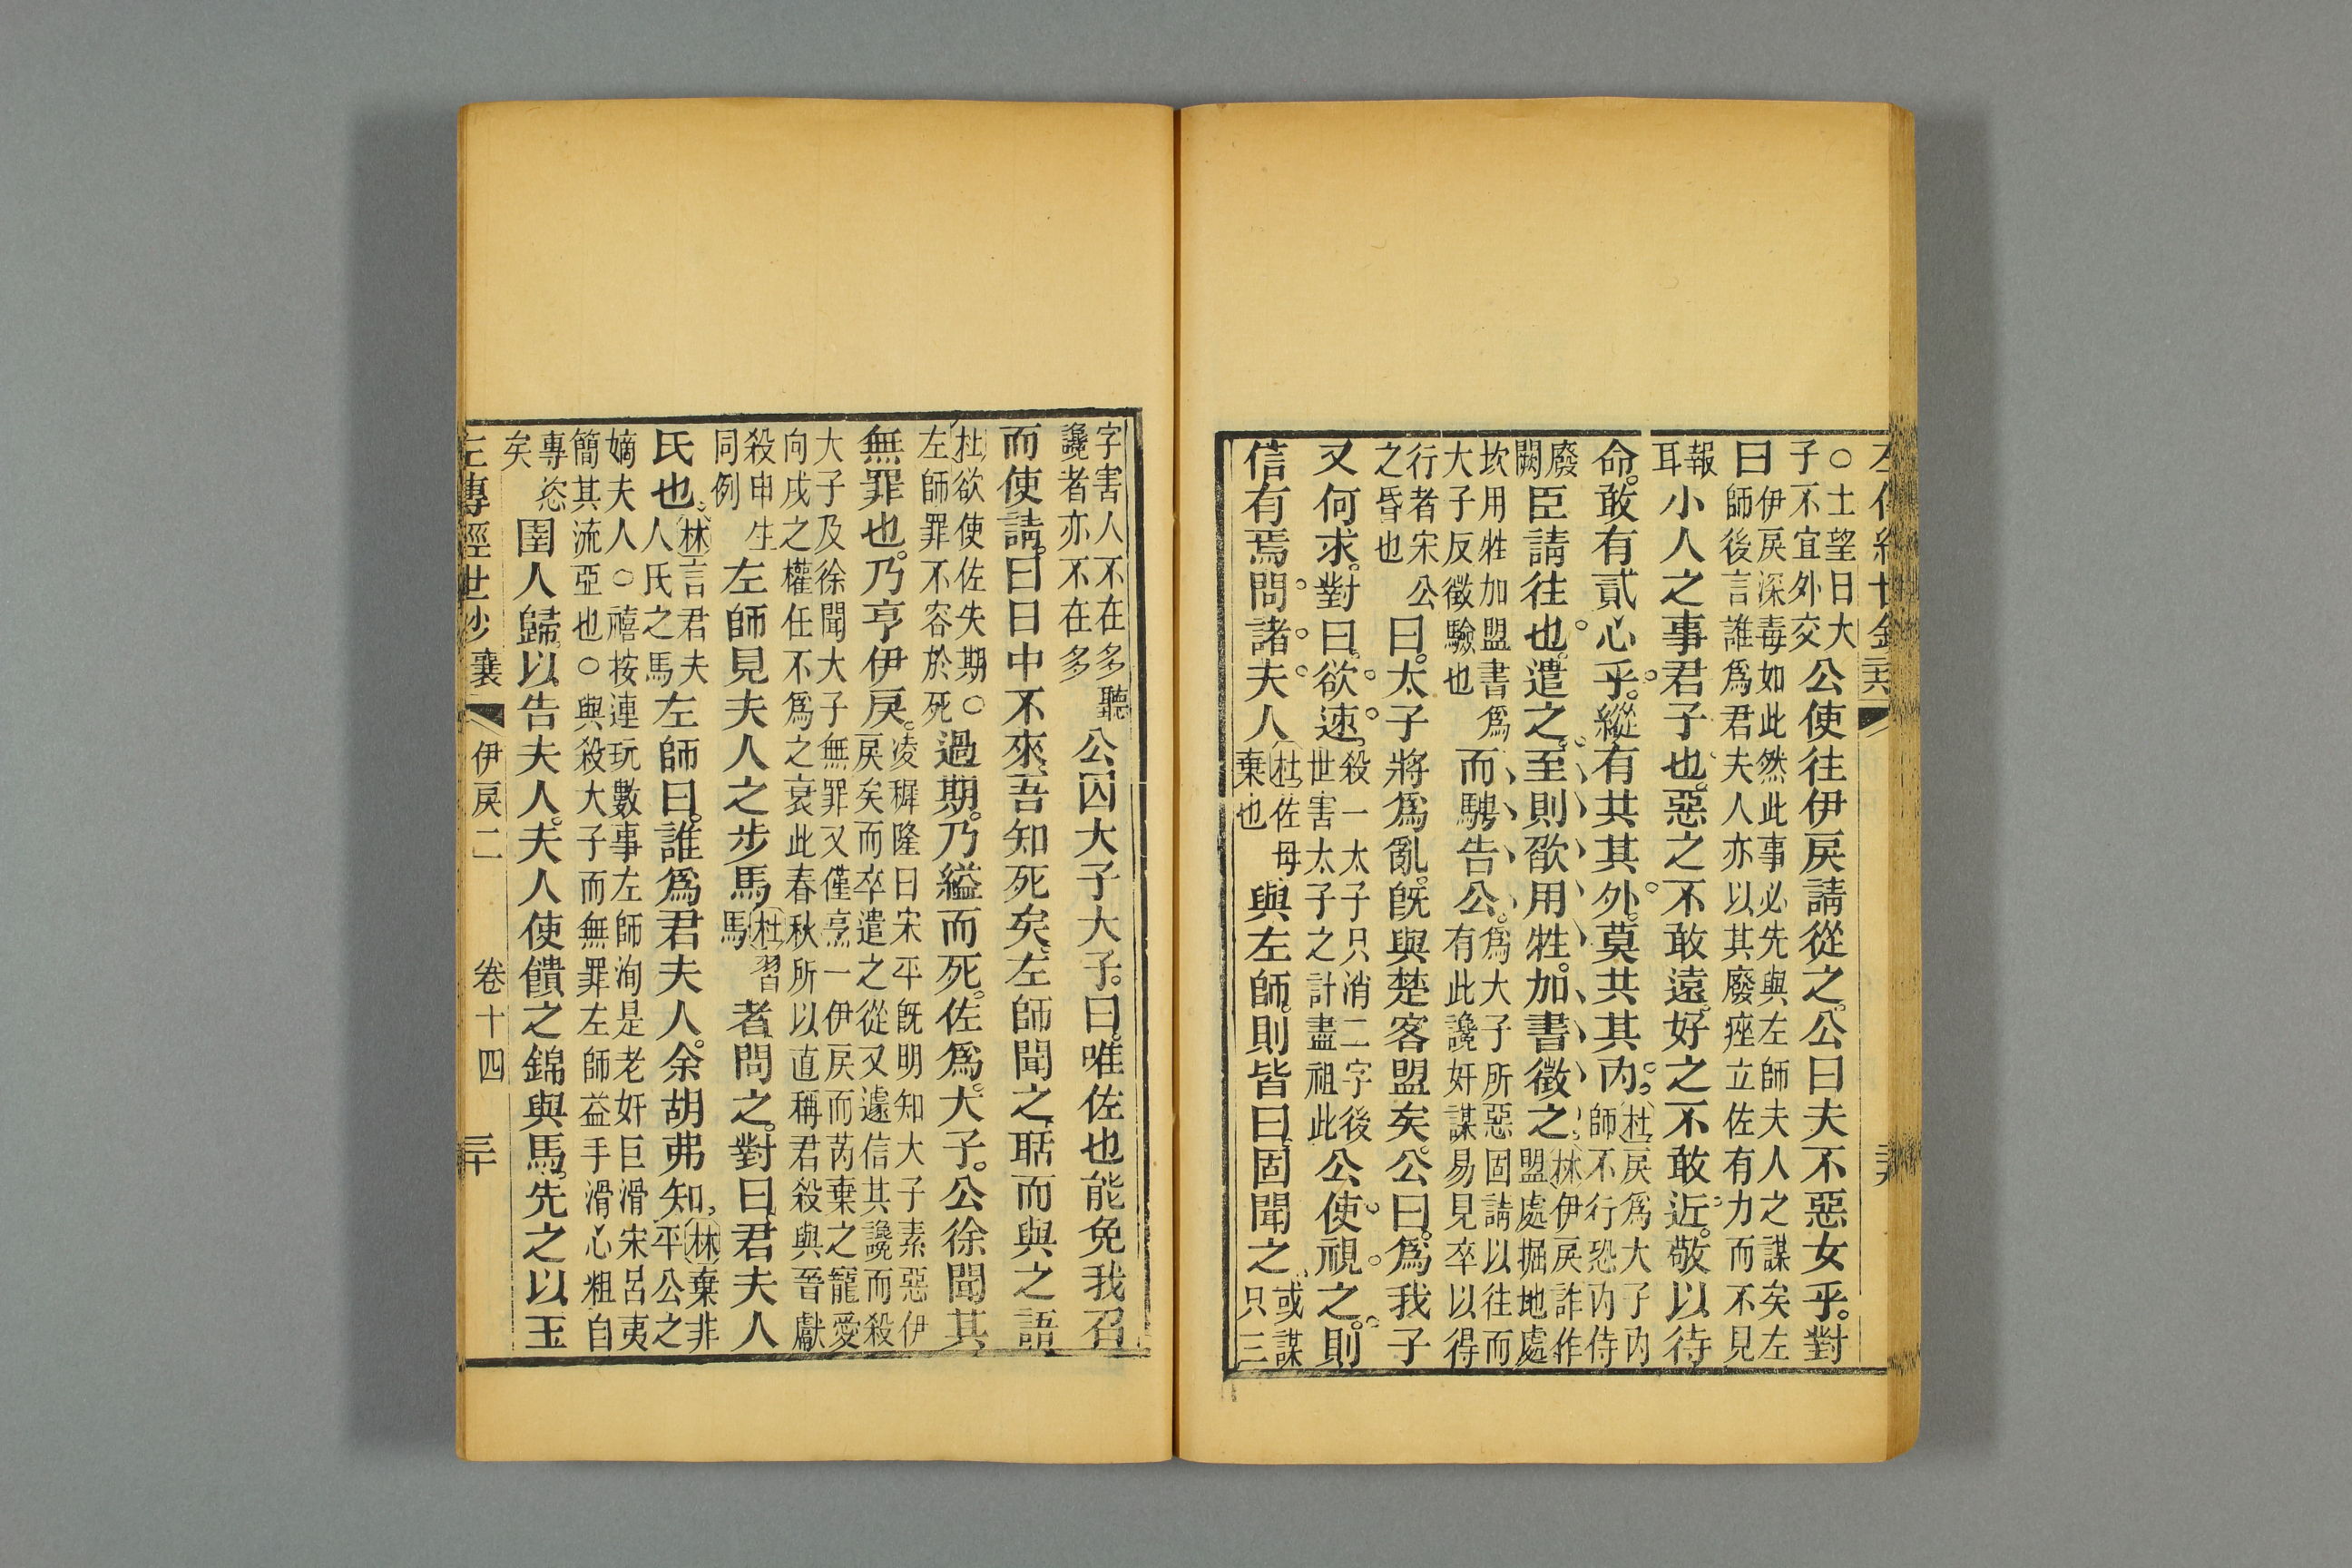 ○士望曰大子不宜外交公使往伊戾請從之。公曰夫不惡女乎。對
曰伊戾深毒如此然此事必先與左師夫人之謀矣左師後言誰爲君夫人亦以其廢痤立佐有力而不見
報耳小人之事君子也。惡之不敢遠。好之不敢近。敬以待
命。敢有貳心乎。縱有共其外。莫共其內。杜戾爲大子內師不行恐內侍
廢闕臣請往也。遣之。至則欿用牲。加書徵之。林伊戾詐作盟處掘地處
坎用牲加盟書爲大子反徵驗也而騁告公。爲大子所惡固請以往而有此讒奸謀易見卒以得
行者宋公之昏也曰。太子將爲亂。旣與楚客盟矣。公曰。爲我子
又何求。對曰。欲速。殺一太子只消二字後世害太子之計盡祖此公使視之。則
信有焉問諸夫人杜佐母棄也與左師。則皆曰固聞之、或謀只三
字害人不在多聽讒者亦不在多公囚大子大子。曰。唯佐也能免我召
而使請。曰日中不來、吾知死矣、左師聞之、聒而與之語
杜欲使佐失期○左師罪不容於死過期。乃縊而死。佐爲大子。公徐聞其
無罪也。乃亨伊戾。凌穉隆曰宋平旣明知大子素惡伊戾矣而卒遣之從又遽信其讒而殺
大子及徐聞大子無罪又僅烹一伊戾而芮棄之寵愛向戌之權任不爲之衰此春秋所以直稱君殺與晉獻
殺申生同例左師見夫人之步馬杜習馬者問之。對曰、君夫人
氏也。林言君夫人氏之馬左師曰。誰爲君夫人。余胡弗知、林棄非平公之
嫡夫人○禧按連玩數事左師洵是老奸巨滑宋呂夷簡其流亞也○與殺大子而無罪左師益手滑心粗自
專恣矣圉人歸。以告夫人。夫人使饋之錦與馬。先之以玉
左傳經世鈔 襄 伊戾二 卷十四 三十